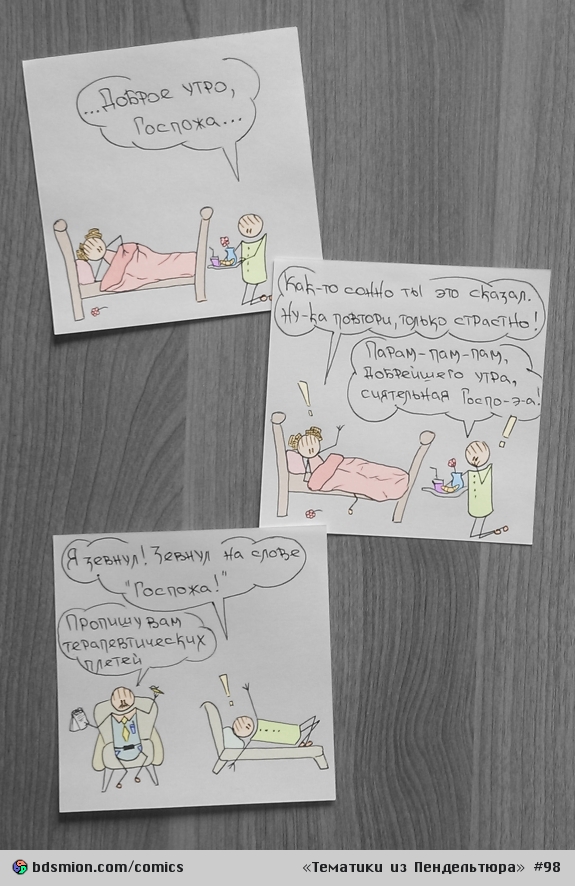 ...Доброе утро,
Госпожа...
Как-то сонно ты это сказал.
Ну-ка повтори, только страстно!
Парам-пам-пам,
добрейшего утра,
сиятельная Госпо-э-а!
!
!
Я зевнул! Зевнул на слове
"Госпожа!"
Пропишу вам
терапевтических
плетей
!
bdsmion.com/comics
«Тематики из Пендельтюра» #98